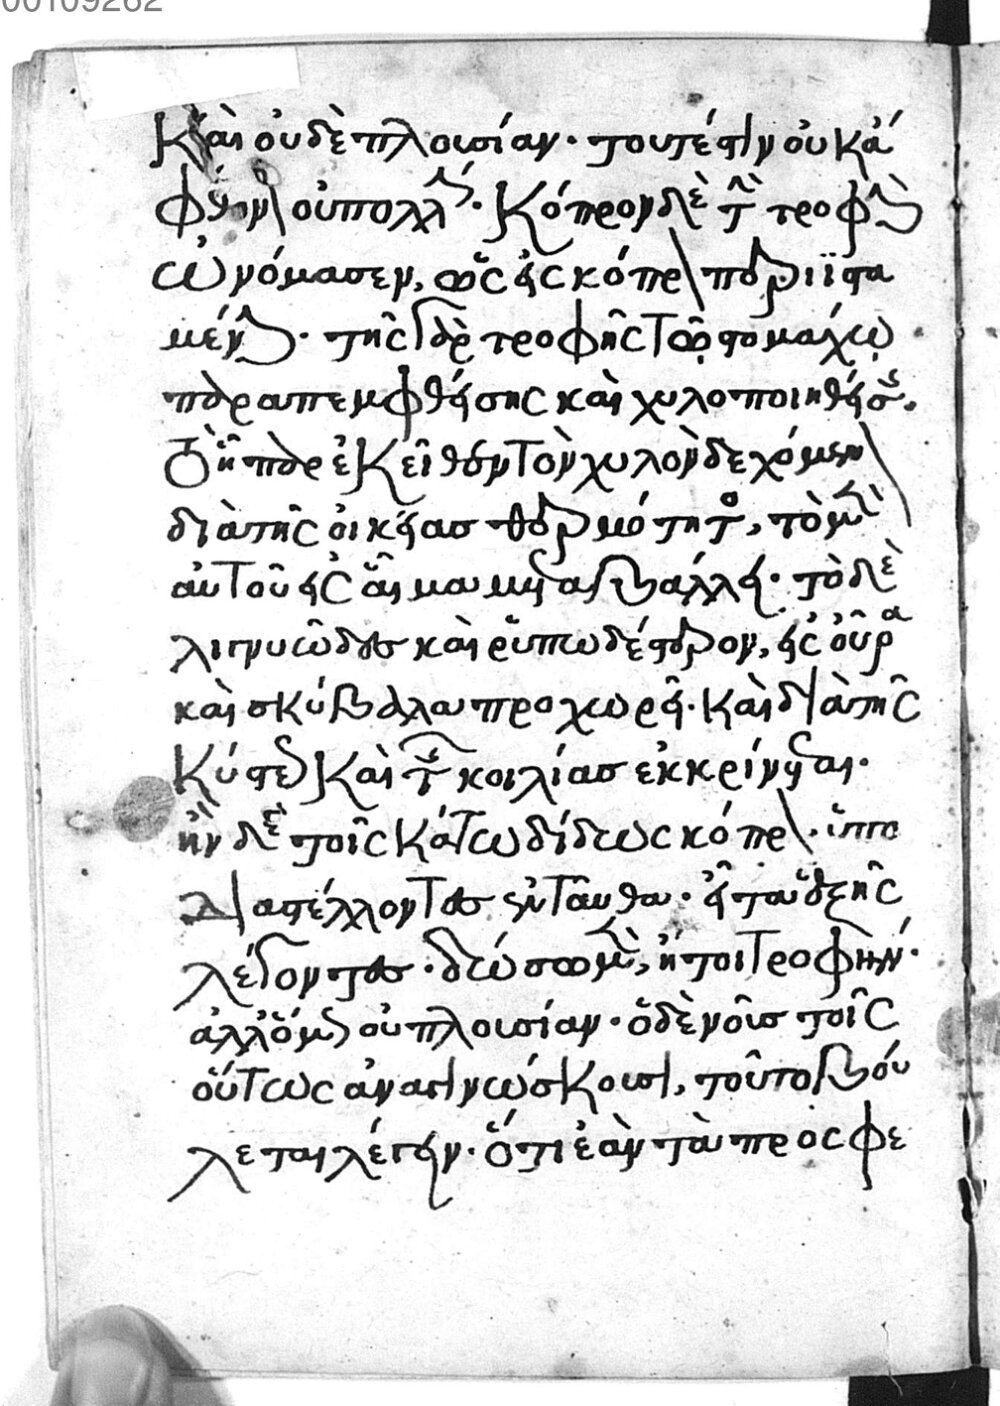 00109262
καὶ οὐδὲ πλουσίαν· τουτέστιν οὐκ ἀ
οὐ πολλ· κόπρον δὲ τὴν τροφὴν
ὠνόμασεν, ὡς εἰς κόπρον περιϊστα
μένην· τῆς γὰρ τροφῆς τῷ στομάχῳ
παραπεμφθείσης καὶ χυλοποιηθείσης.
τὸ ἧπαρ ἐκεῖθεν τὸν χυλὸν δεχόμενον
διὰ τῆς οἰκείας θερμότητος, τὸ μὲν
αὐτοῦ εἰς αἷμα μεταβάλλει· τὸ δὲ
λιγνυῶδες καὶ ῥυπωδέστερον, εἰς οὖρα
καὶ σκύβαλα προχωρεῖ· καὶ διὰ τῆς
κύστεως καὶ τῆς κοιλίας ἐκκρίνεται.
ἣν δὲ τοῖς κάτω δίδως κόπρον· ἵππο
διαστέλλοντες ἐνταῦθα· εἶτα ἑξῆς
λέγοντες· δώσω μὲν, ἤτοι τροφὴν·
ἀλλ' ὅμως οὐ πλουσίαν· ὁ δὲ νοῦς τοῖς
οὕτως ἀναγινώσκουσι, τοῦτο βού
λεται λέγειν· ὅτι ἐὰν τὰ προσφε